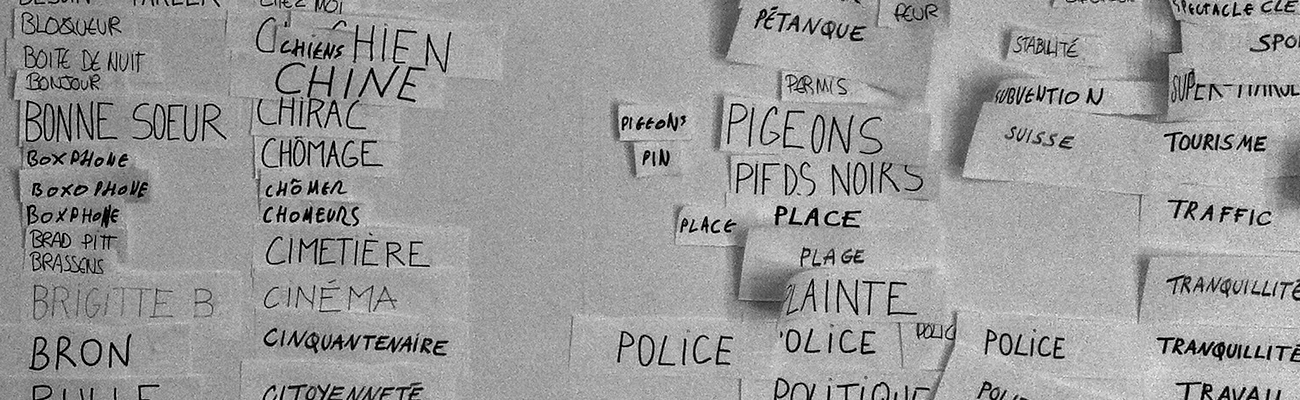 CHEZ MOI
BLOQUEUR
BOITE DE NUIT
BONJOUR
BONNE SOEUR
BOXPHONE
BOXOPHONE
BOXPHONE
BRAD PITT
BRASSENS
BRIGITTE B
BRON
BULLE
CHIENS
CHIEN
CHINE
CHIRAC
CHÔMAGE
CHÔMER
CHOMEURS
CIMETIÈRE
CINÉMA
CINQUANTENAIRE
CITOYENNETÉ
PIGEONS
PIN
PLACE
POLICE
PÉTANQUE
PEUR
PERMIS
PIGEONS
PIEDS NOIRS
PLACE
PLAGE
LAINTE
OLICE
POLIC
POLITIQUE
STABILITÉ
SUBVENTION
SUISSE
POLICE
SPECTACLE CLE
SPO
TOURISME
TRAFFIC
TRANQUILLITÉ
TRANQUILLITÉ
TRAVAU